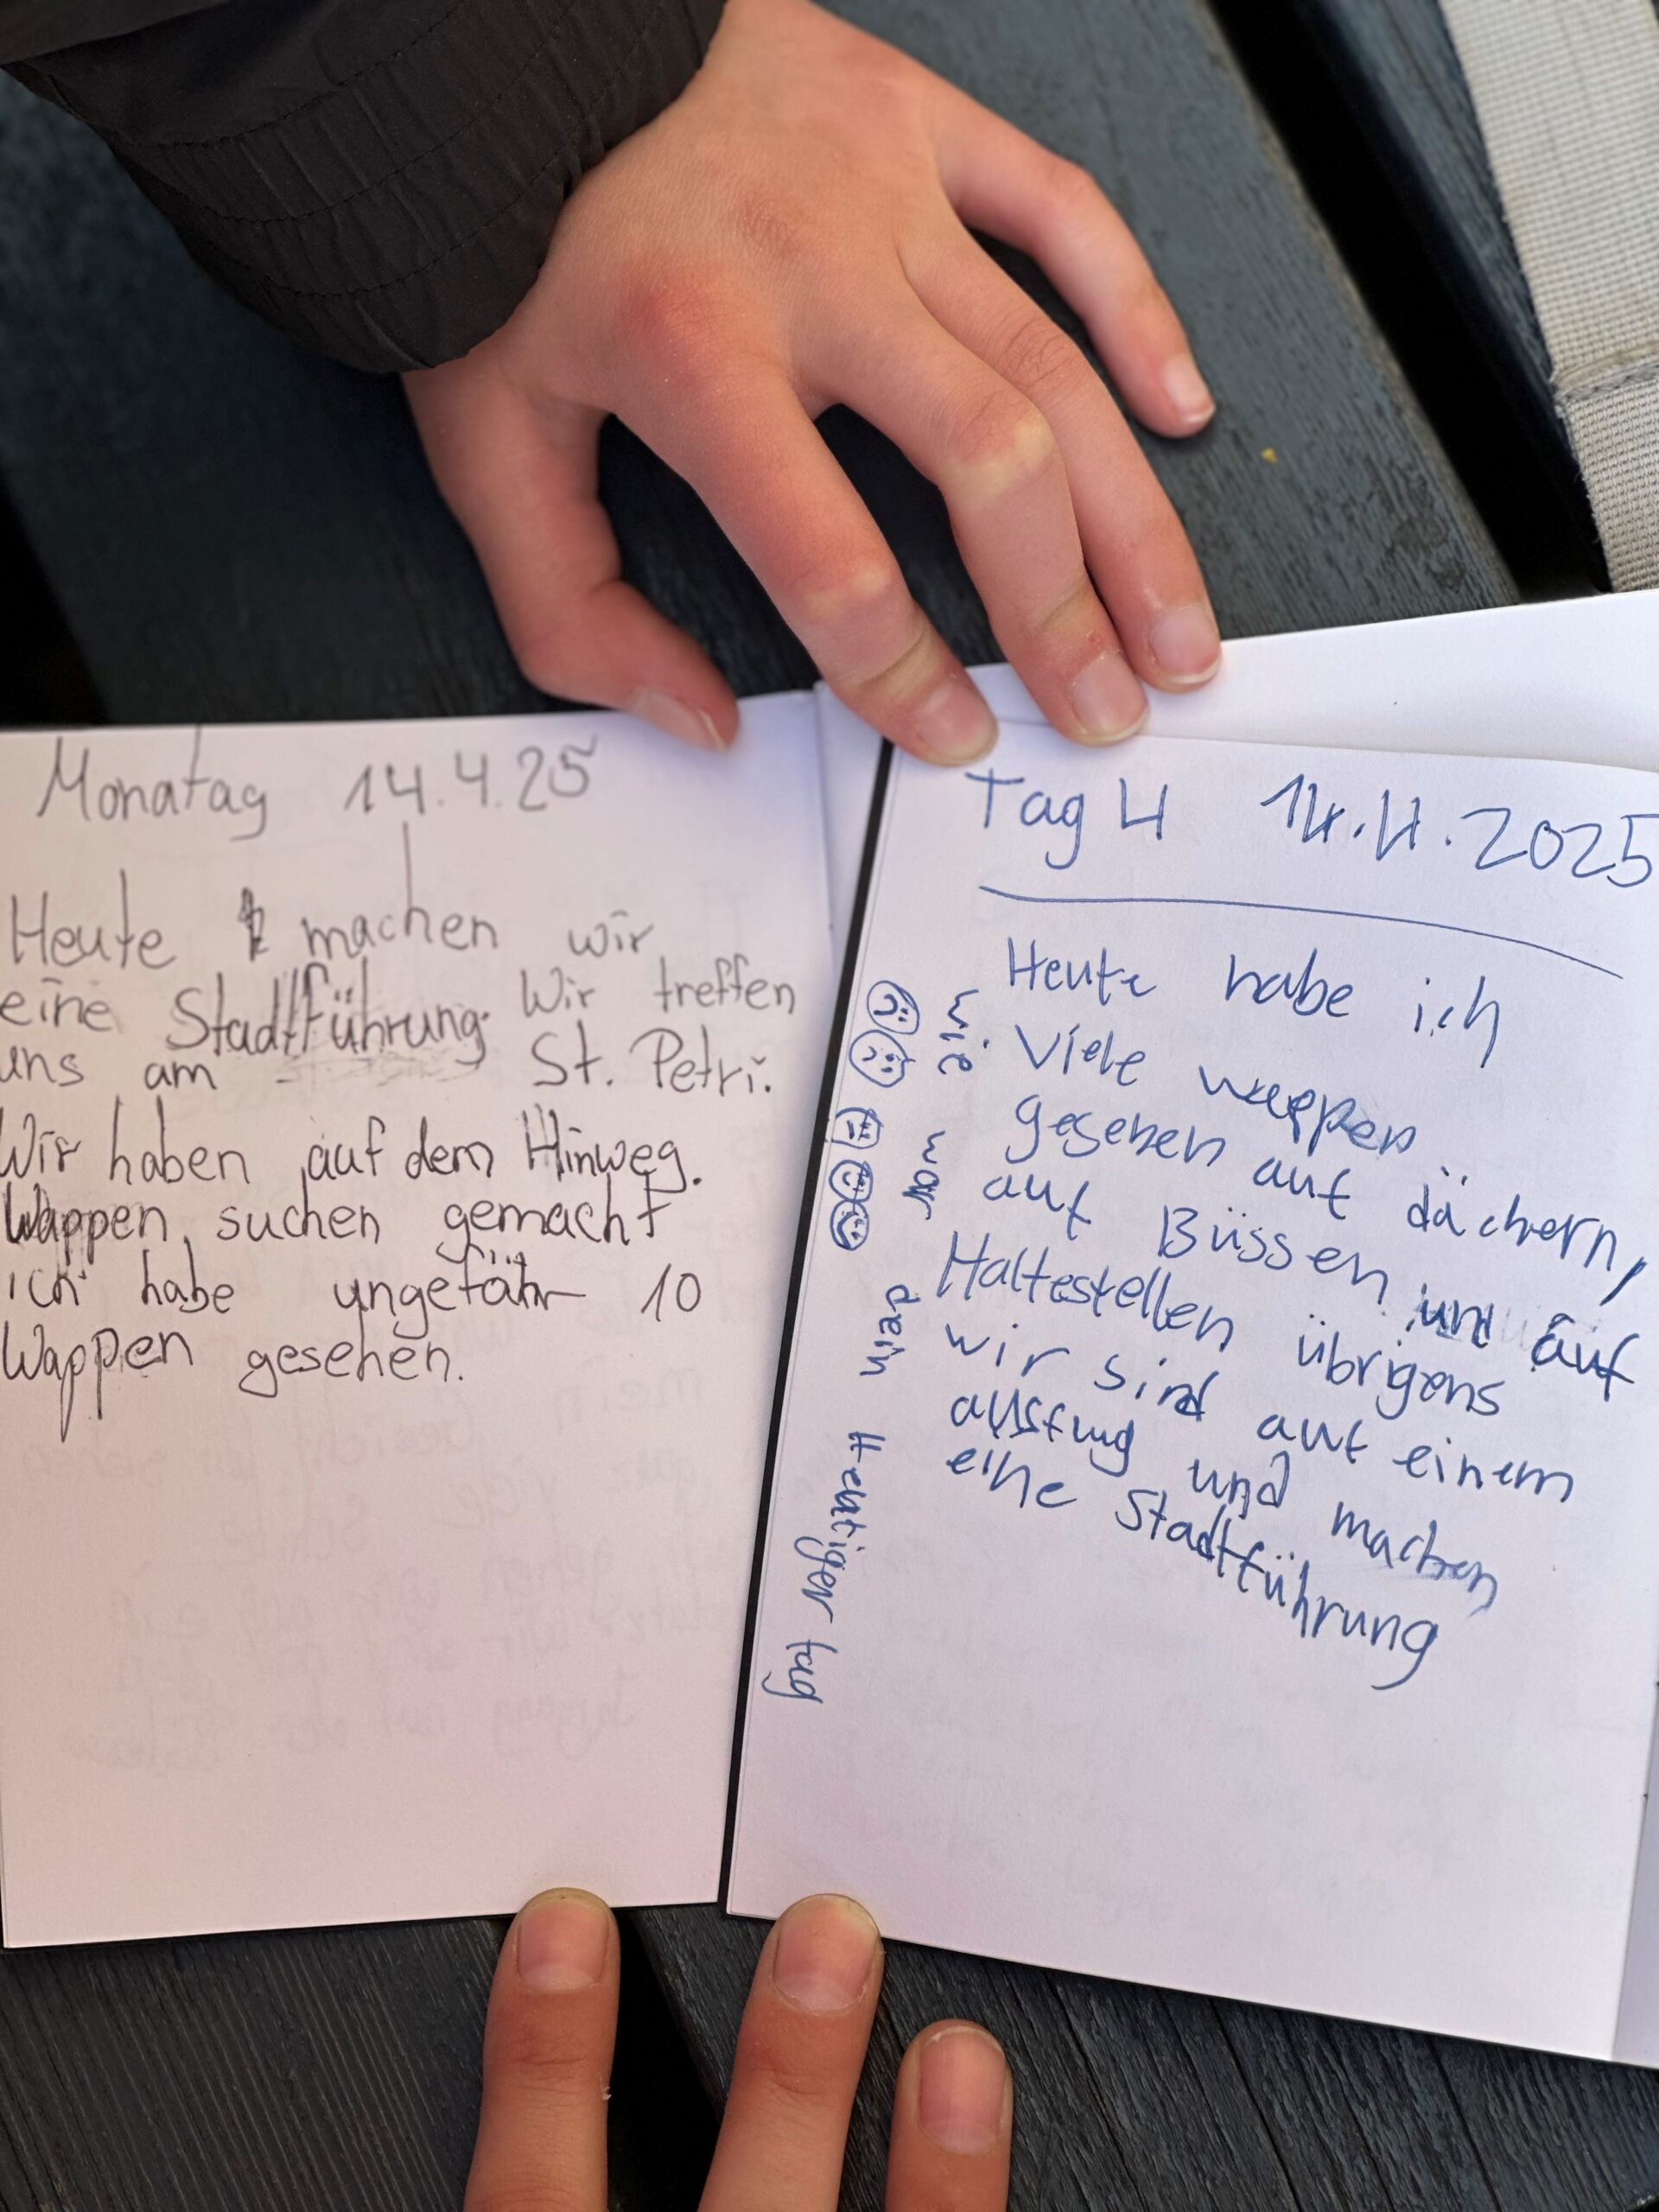 Monatag 14.4.25
Heute machen wir
eine Stadtführung. Wir treffen
uns am St. Petri.
Wir haben auf dem Hinweg.
Wappen suchen gemacht
ich habe ungefähr 10
Wappen gesehen.
Tag 4 14.4.2025
Heute habe ich
viele wappen
gesehen auf dächern,
auf Büssen und auf
Haltestellen übrigens
wir sind auf einem
ausflug und machen
eine Stadtführung
wie war dein Heutiger tag